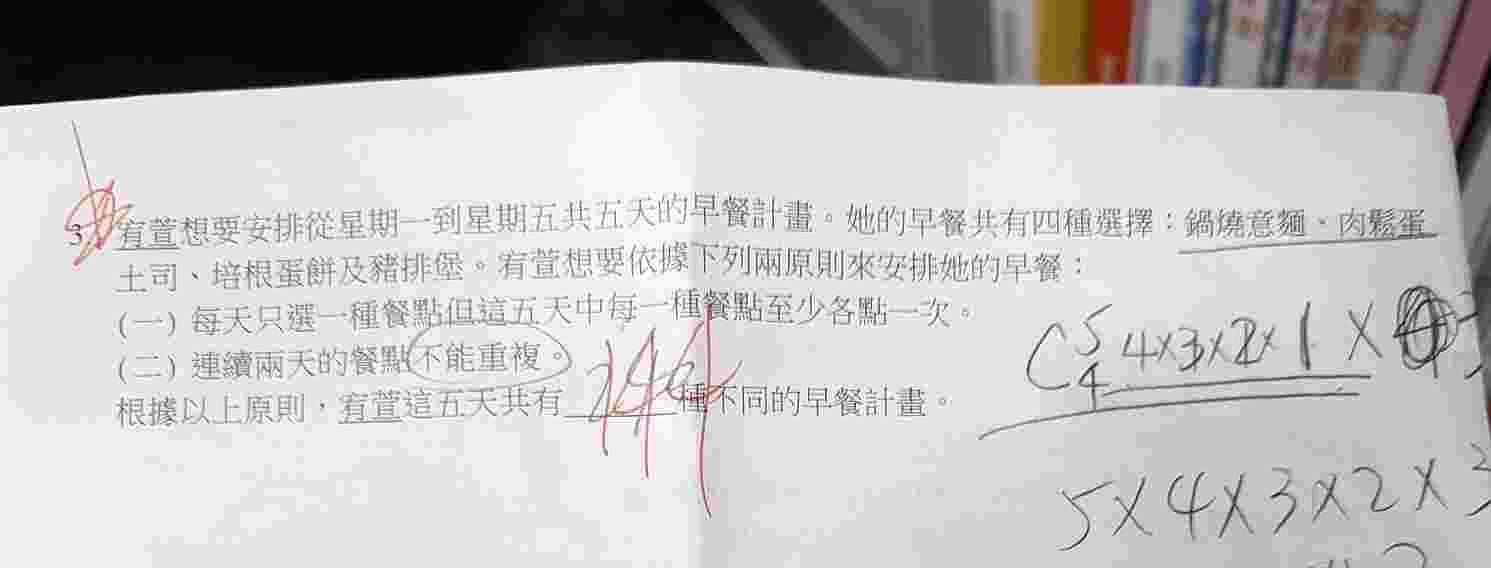 3. 宥萱想要安排從星期一到星期五共五天的早餐計畫。她的早餐共有四種選擇：鍋燒意麵、肉鬆蛋
土司、培根蛋餅及豬排堡。宥萱想要依據下列兩原則來安排她的早餐：
(一) 每天只選一種餐點但這五天中每一種餐點至少各點一次。
(二) 連續兩天的餐點不能重複。
根據以上原則，宥萱這五天共有 種不同的早餐計畫。
C⁵₄ 4×3×2×1×
5×4×3×2×3